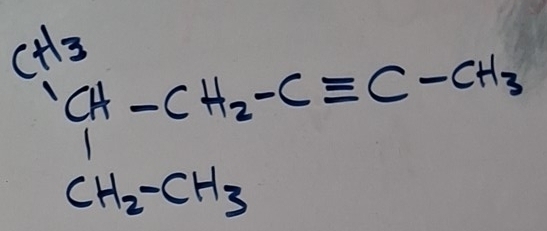 CH3
CH-CH2-C≡C-CH3
CH2-CH3